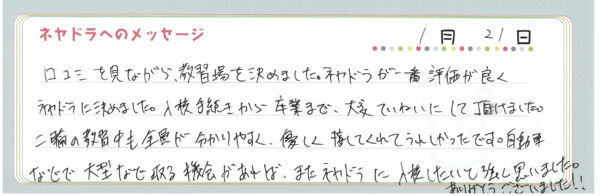 ネヤドラへのメッセージ
1月21日
口コミを見ながら、教習場を決めました。ネヤドラが一番評価が良く
ネヤドラに決めました。入校手続きから卒業まで、大変ていねいにして頂けました。
二輪の教習中も全員が分かりやすく、優しく接してくれてうれしかったです。自動車
などで大型など取る機会があれば、またネヤドラに入校したいと強く思いました。
ありがとうございました!!